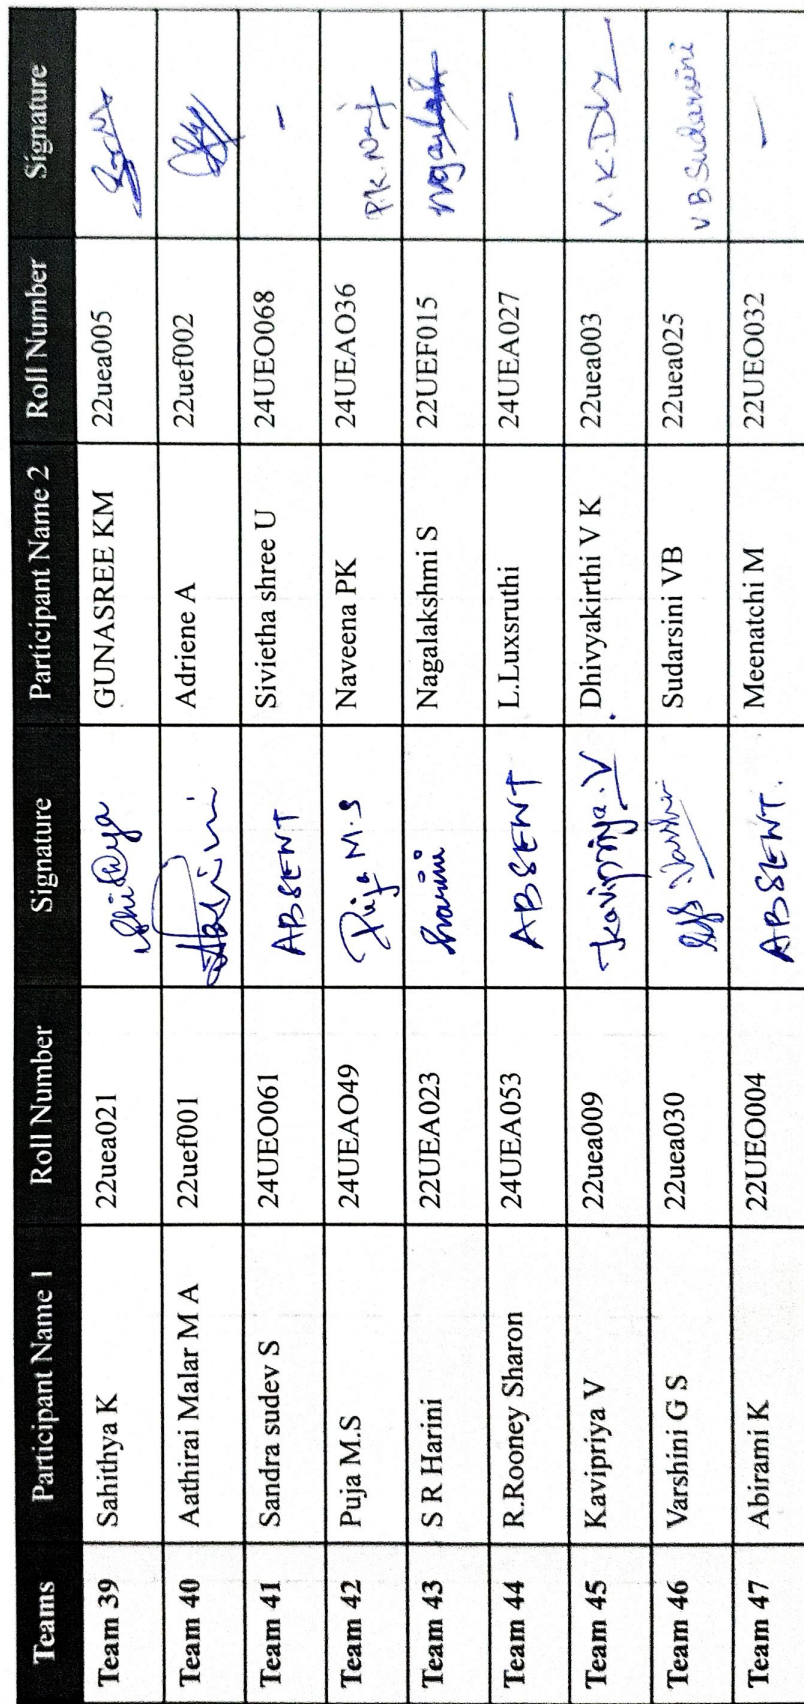 Teams Participant Name 1 Roll Number Signature Participant Name 2 Roll Number Signature
Team 39 Sahithya K 22uea021 GUNASREE KM 22uea005
Team 40 Aathirai Malar M A 22uef001 Adriene A 22uef002
Team 41 Sandra sudev S 24UEO061 ABSENT Sivietha shree U 24UEO068 -
Team 42 Puja M.S 24UEAO49 Puja M.S Naveena PK 24UEAO36
Team 43 S R Harini 22UEA023 Nagalakshmi S 22UEF015
Team 44 R.Rooney Sharon 24UEA053 ABSENT L.Luxsruthi 24UEA027 -
Team 45 Kavipriya V 22uea009 Kavipriya.V Dhivyakirthi V K 22uea003
Team 46 Varshini G S 22uea030 Sudarsini VB 22uea025 V B Sudarsini
Team 47 Abirami K 22UEO004 ABSENT. Meenatchi M 22UEO032 -